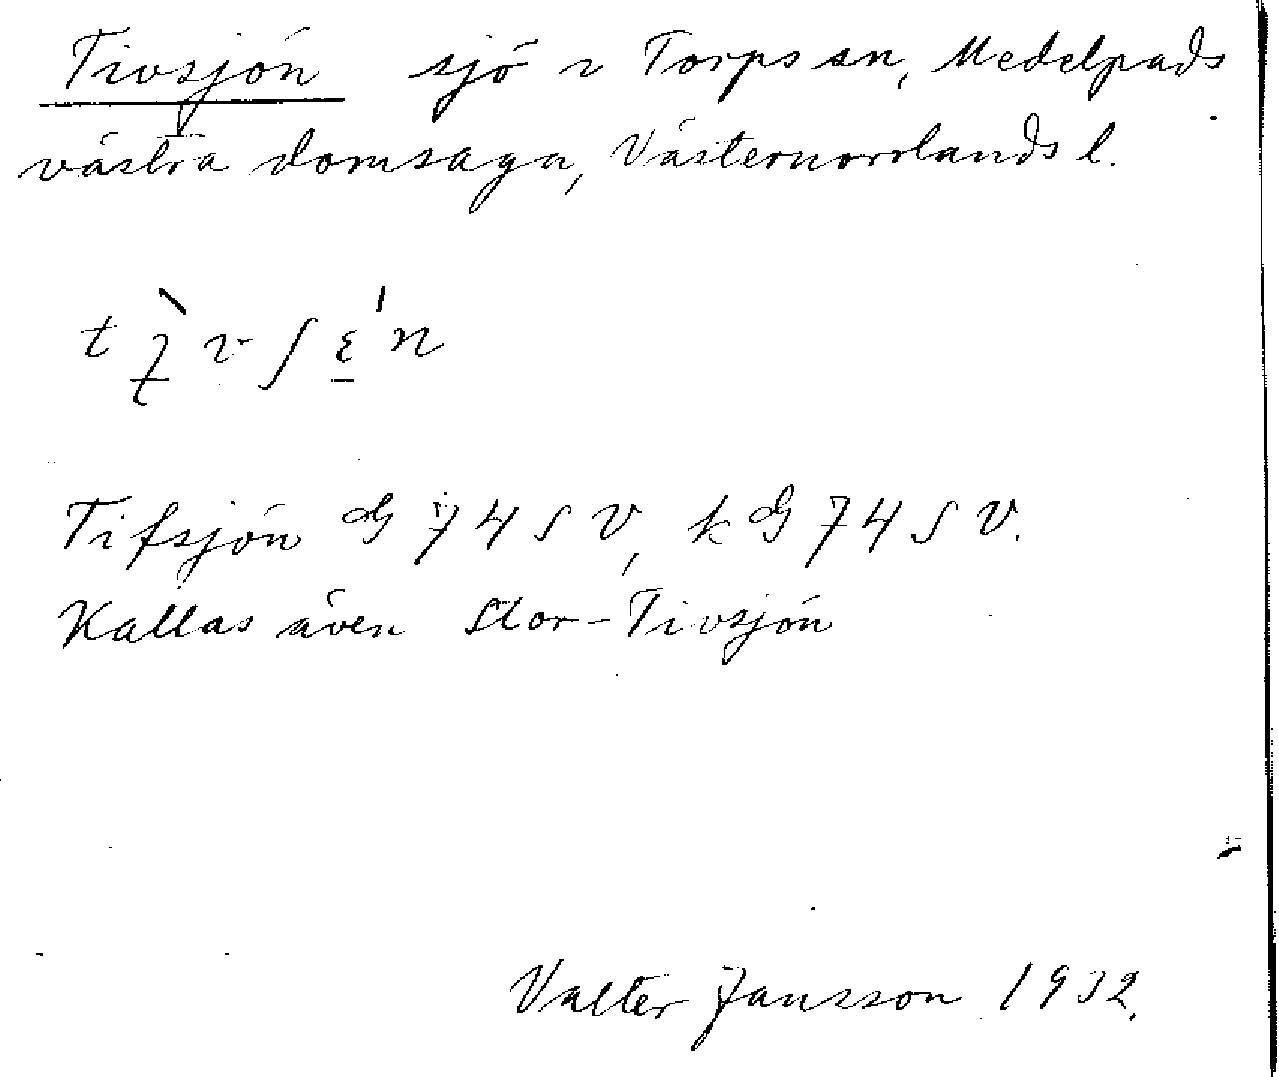 Tivsjön sjö i Torps sn, Medelpads
västra domsaga, Västernorrlands l.
Tifsjön G 74 SV, k G 74 SV.
Kallas även Stor-Tivsjön
Valter Jansson 1932.